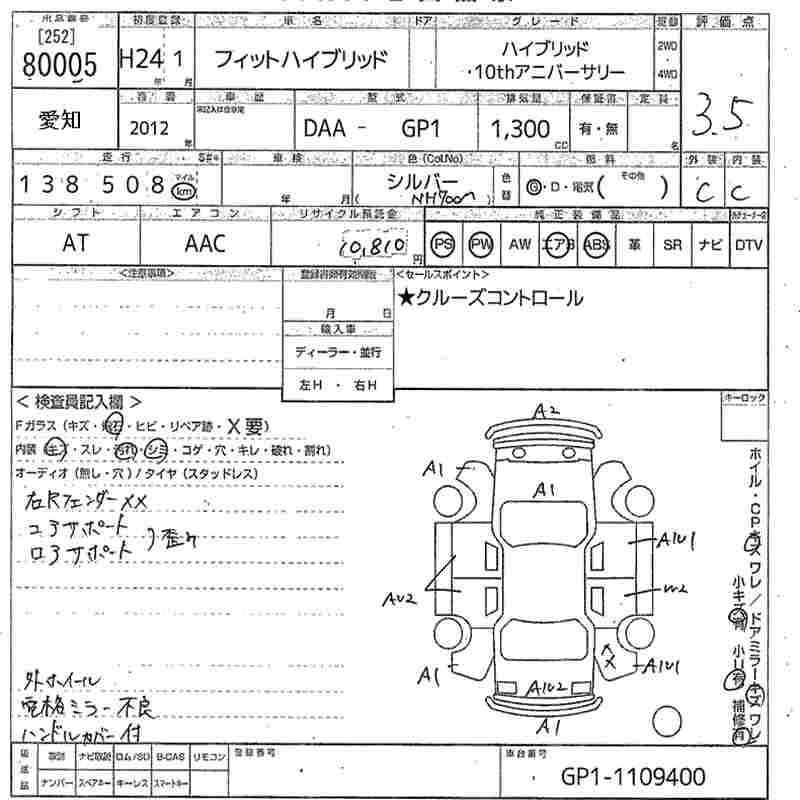 出品番号 初度登録 車名 ドア グレード 評価点
[252]
80005 H24 年 1 月 フィットハイブリッド ハイブリッド
・10thアニバーサリー 2WD
・
4WD 3.5
愛知 車歴 型式 排気量 保証書 定員
2012 年 DAA - GP1 1,300 CC 有・無 名
走行 車検 色(Col.No) 燃料 外装 内装
138 508 マイル km 年 月 シルバー
( NH700M ) 色替 G・D・電気( その他 ) C C
シフト エアコン リサイクル預託金 純正装備品
AT AAC 10,810 円 PS PW AW エアB ABS 革 SR ナビ DTV
<注意事項> <セールスポイント>
月 日 ★クルーズコントロール
輸入車
ディーラー・並行
左H ・ 右H
< 検査員記入欄 > キーロック
Fガラス (キズ・飛石・ヒビ・リペア跡・X要)
内装 (キズ・スレ・汚れ・シミ・コゲ・穴・キレ・破れ・割れ)
オーディオ (無し・穴) / タイヤ (スタッドレス)
右Rフェンダー XX
コアサポート
ロアサポート ) 歪み
外ホイール
電格ミラー不良
ハンドルカバー付
A2
A1
A1
A1U1
AU2
U2
A1
A1U1
XX
A1U2
A1
ホイル・CPキズ ワレ / ドアミラーキズ ワレ
小キズ有 小U有 補修有
取説 ナビ取説 ロム/SD B-CAS リモコン 登録番号 車台番号
ナンバー スペアキー キーレス スマートキー GP1-1109400